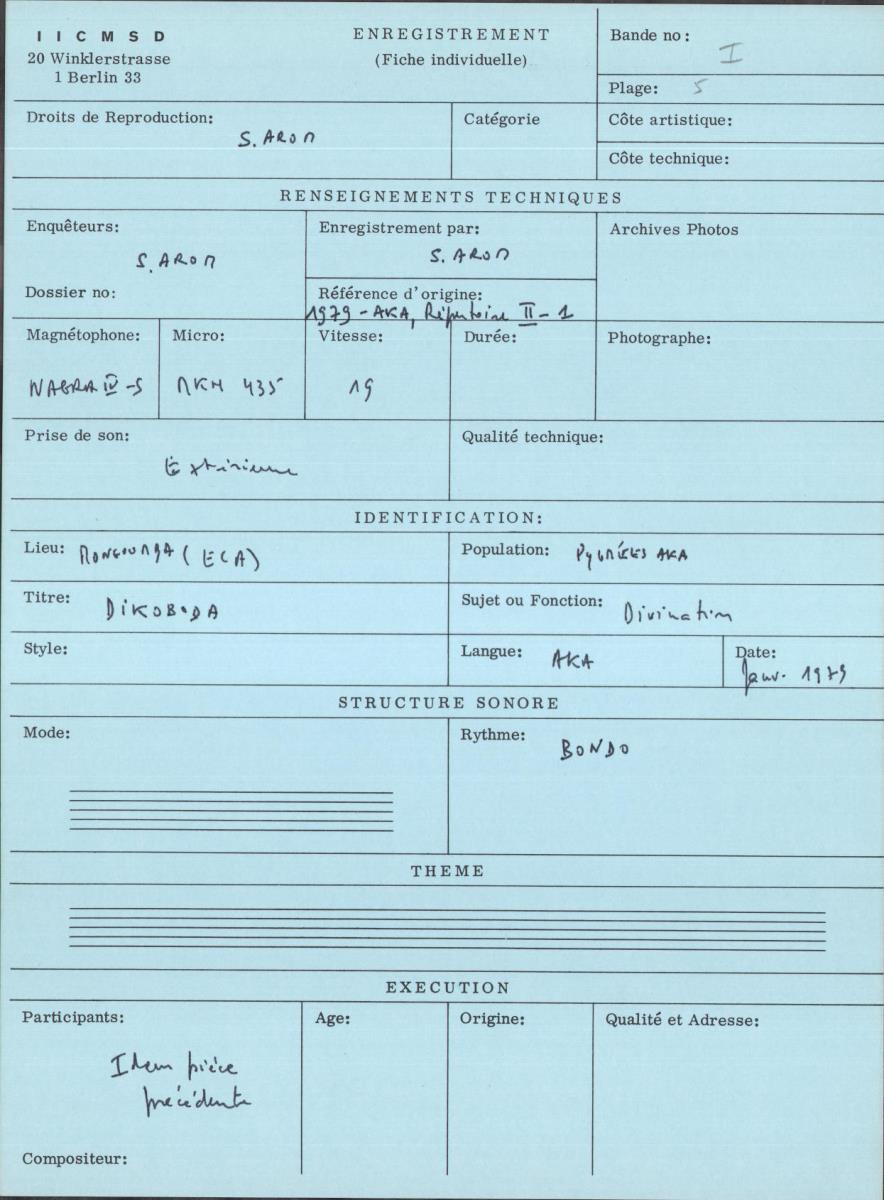 I I C M S D
20 Winklerstrasse
1 Berlin 33
ENREGISTREMENT
(Fiche individuelle)
Bande no: I
Plage: 5
Droits de Reproduction:
S. AROM
Catégorie
Côte artistique:
Côte technique:
RENSEIGNEMENTS TECHNIQUES
Enquêteurs:
S. AROM
Dossier no:
Enregistrement par:
S. AROM
Référence d'origine:
1979 - AKA, Répertoire II - 1
Archives Photos
Magnétophone:
NAGRA IV-S
Micro:
MKH 435
Vitesse:
19
Durée:
Photographe:
Prise de son:
Extérieure
Qualité technique:
IDENTIFICATION:
Lieu: MONGOUMBA (ECA)
Population: PYGMÉES AKA
Titre: DIKOBODA
Sujet ou Fonction: Divination
Style:
Langue: AKA
Date:
Janv. 1979
STRUCTURE SONORE
Mode:
Rythme:
BONDO
THEME
EXECUTION
Participants:
Idem pièce
précédente
Age:
Origine:
Qualité et Adresse:
Compositeur: